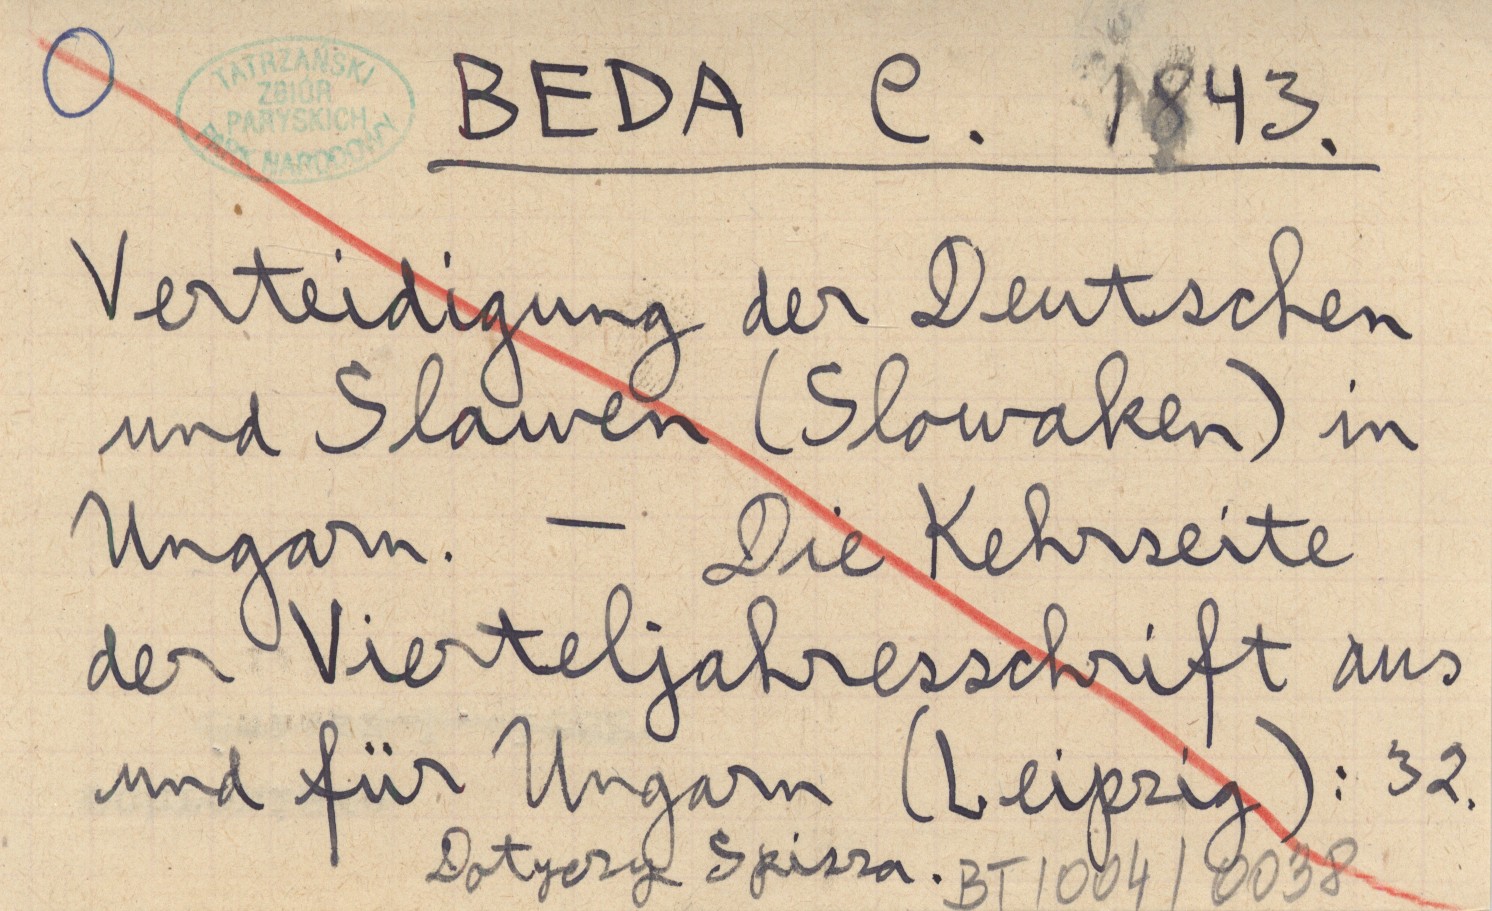 TATRZAŃSKI
ZBIÓR
PARYSKICH
NARODOWY
BEDA C. 1843.
Verteidigung der Deutschen
und Slawen (Slowaken) in
Ungarn. — Die Kehrseite
der Vierteljahresschrift aus
und für Ungarn (Leipzig): 32.
Dotyczy Spisza.
BT/004/0038